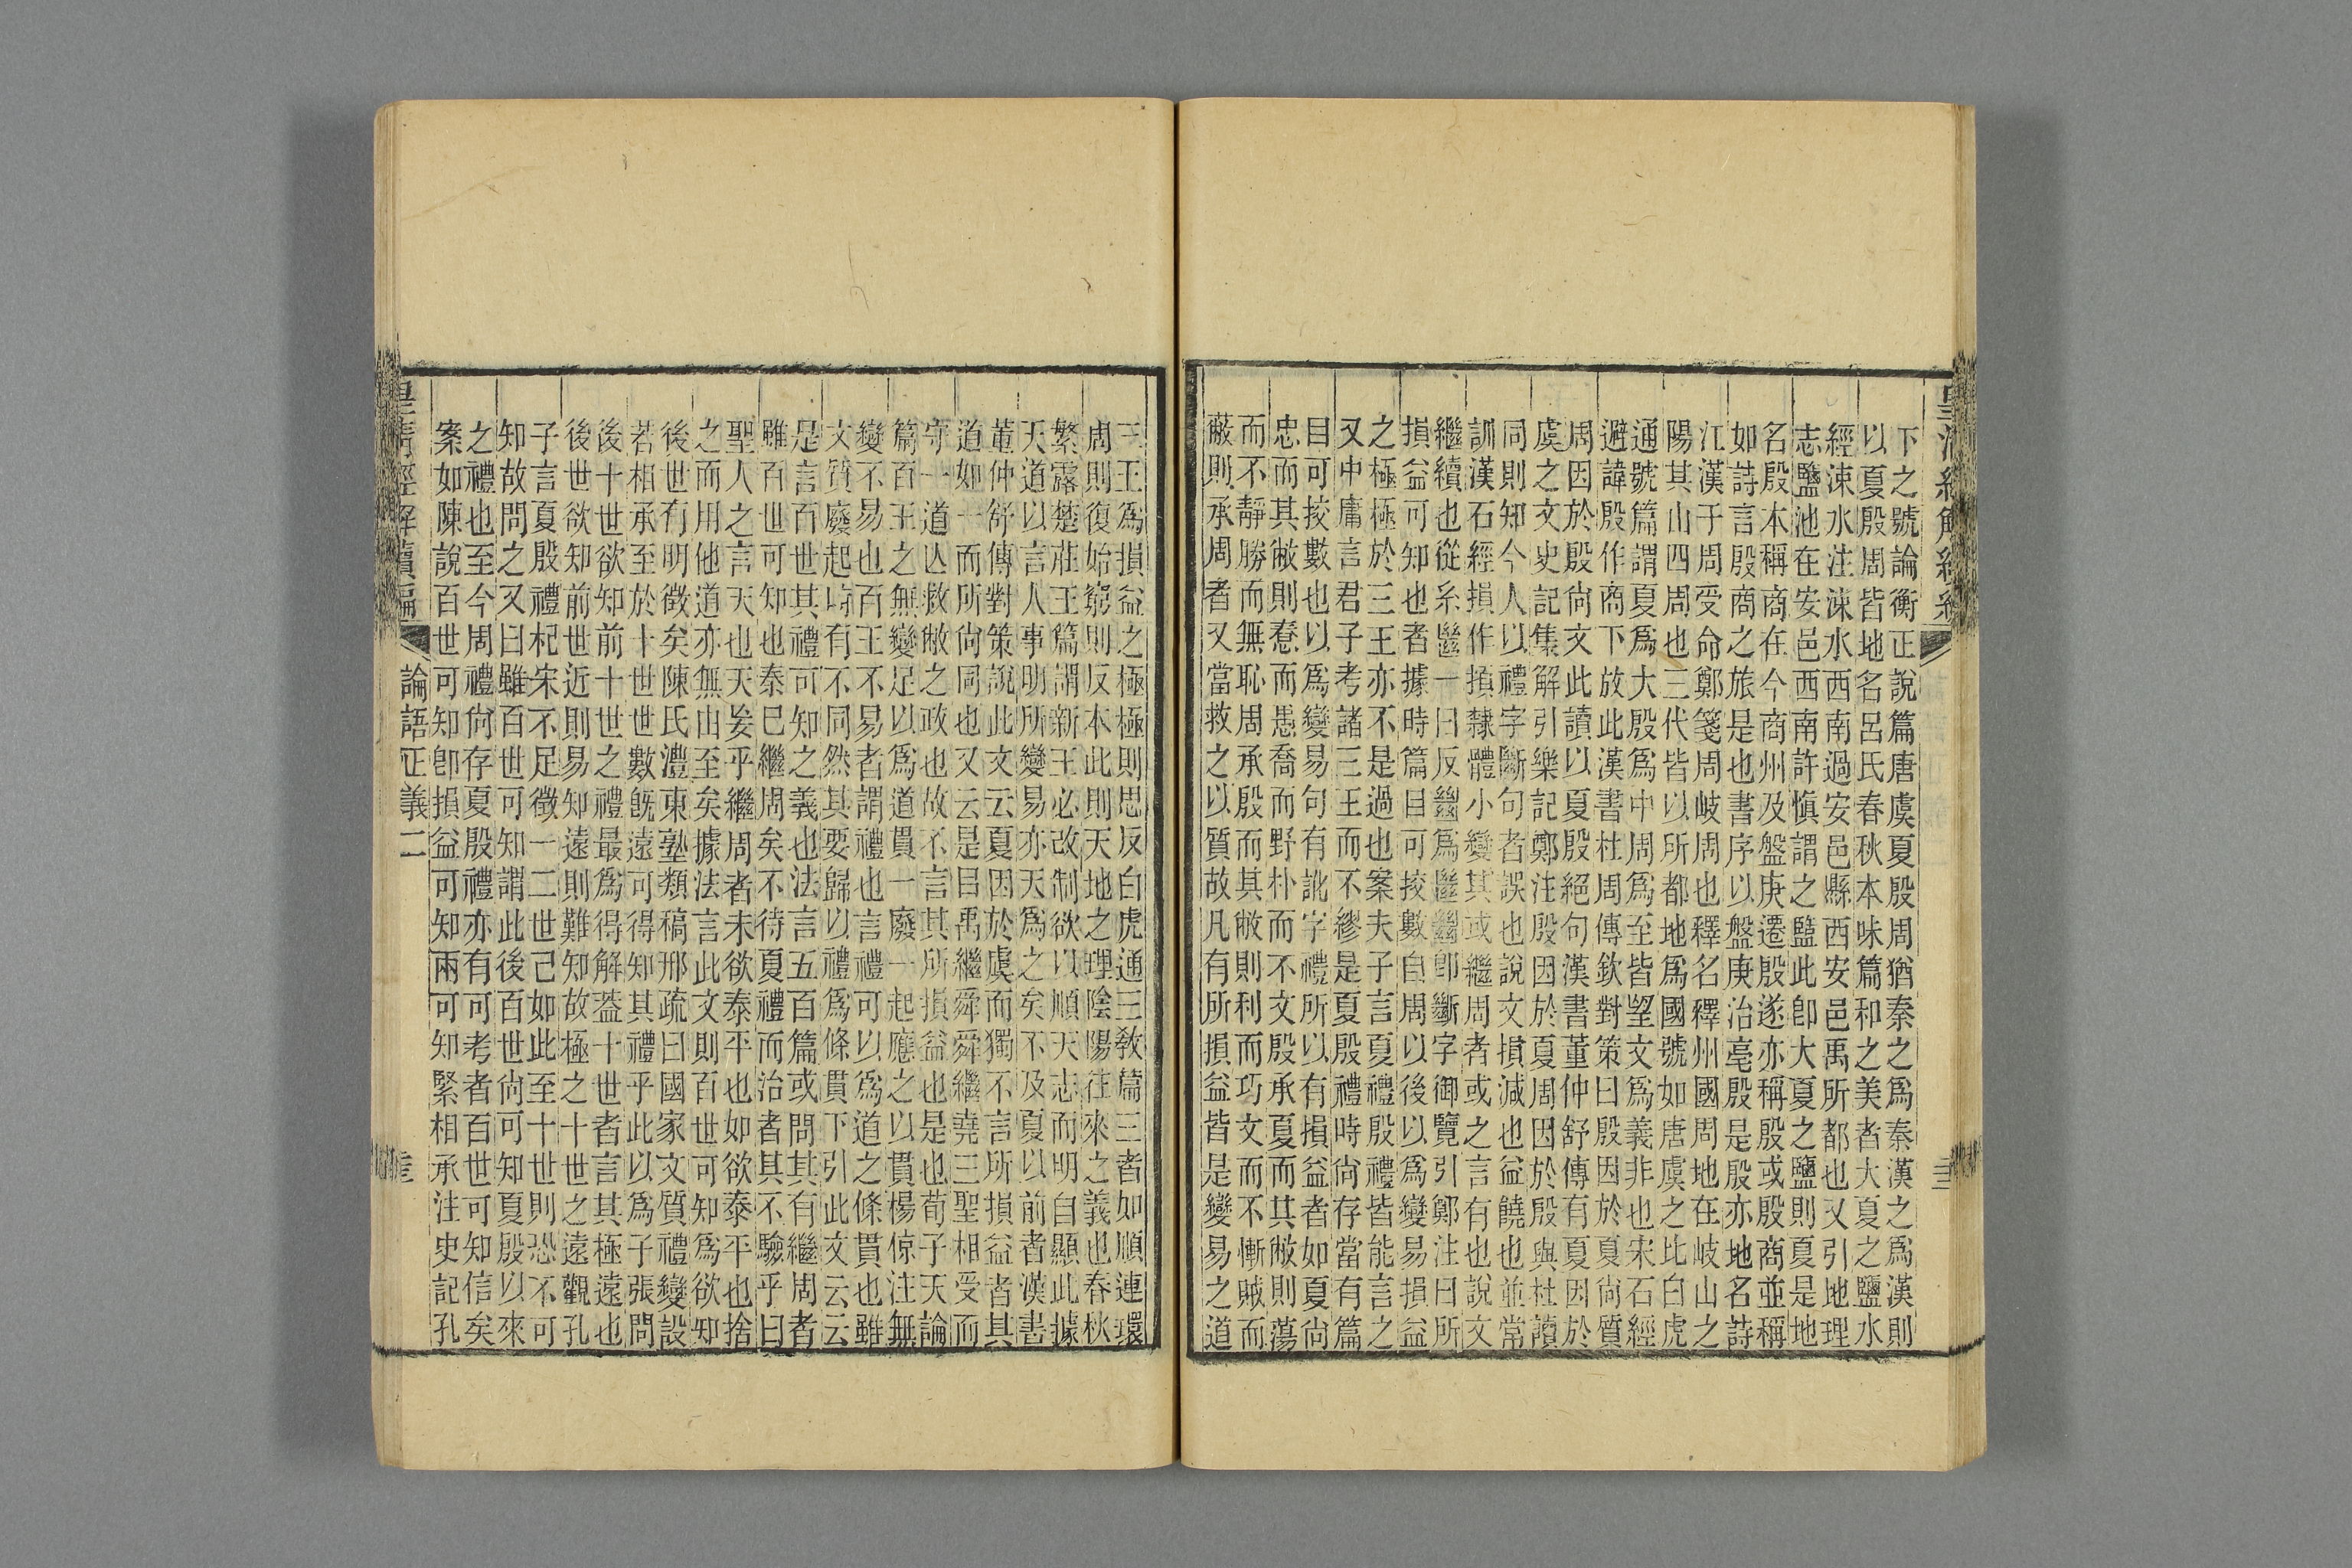 下之號論衡正說篇唐虞夏殷周猶秦之爲秦漢之爲漢則
以夏殷周皆地名呂氏春秋本味篇和之美者大夏之鹽水
經涑水注涑水西南過安邑縣西安邑禹所都也又引地理
志鹽池在安邑西南許愼謂之鹽此卽大夏之鹽則夏是地
名殷本稱商在今商州及盤庚遷殷遂亦稱殷或殷商並稱
如詩言殷商之旅是也書序以盤庚治亳殷是殷亦地名詩
江漢于周受命鄭箋周岐周也釋名釋州國周地在岐山之
陽其山四周也三代皆以所都地爲國號如唐虞之比白虎
通號篇謂夏爲大殷爲中周爲至皆望文爲義非也宋石經
避諱殷作商下放此漢書杜周傳欽對策曰殷因於夏尙質
周因於殷尙文此讀以夏殷絕句漢書董仲舒傳有夏因於
虞之文史記集解引樂記鄭注殷因於夏周因於殷與杜讀
同則知今人以禮字斷句者誤也說文損減也益饒也並常
訓漢石經損作損隸體小變其或繼周者或之言有也說文
繼續也從糸㡭一曰反㡭爲繼㡭卽斷字御覽引鄭注曰所
損益可知也者據時篇目可挍數自周以後以爲變易損益
之極極於三王亦不是過也案夫子言夏禮殷禮皆能言之
又中庸言君子考諸三王而不繆是夏殷禮時尙存當有篇
目可挍數也以爲變易句有訛字禮所以有損益者如夏尙
忠而其敝則惷而愚喬而野朴而不文殷承夏而其敝則蕩
而不靜勝而無恥周承殷而其敝則利而巧文而不慚賊而
蔽則承周者又當救之以質故凡有所損益皆是變易之道
三王爲損益之極極則思反白虎通三敎篇三者如順連環
周則復始窮則反本此則天地之理陰陽往來之義也春秋
繁露楚莊王篇謂新王必改制欲以順天志而明自顯此據
天道以言人事明所變易亦天爲之矣不及夏以前者漢書
董仲舒傳對策說此文云夏因於虞而獨不言所損益者其
道如一而所尙同也又云是目禹繼舜舜繼堯三聖相受而
守一道亾救敝之政也故不言其所損益也是也荀子天論
篇百王之無變足以爲道貫一廢一起應之以貫楊倞注無
變不易也百王不易者謂禮也言禮可以爲道之條貫也雖
文質廢起時有不同然其要歸以禮爲條貫下引此文云云
是言百世其禮可知之義也法言五百篇或問其有繼周者
雖百世可知也秦已繼周矣不待夏禮而治者其不驗乎曰
聖人之言天也天妄乎繼周者未欲泰平也如欲泰平也捨
之而用他道亦無由至矣據法言此文則百世可知爲欲知
後世有明徵矣陳氏澧東塾類稿邢疏曰國家文質禮變設
若相承至於十世世數旣遠可得知其禮乎此以爲子張問
後十世欲知前十世之禮最爲得解葢十世者言其極遠也
後世欲知前世近則易知遠則難知故極之十世之遠觀孔
子言夏殷禮杞宋不足徵一二世已如此至十世則恐不可
知故問之又曰雖百世可知謂此後百世尙可知夏殷以來
之禮也至今周禮尙存夏殷禮亦有可考者百世可知信矣
案如陳說百世可知卽損益可知兩可知緊相承注史記孔
論語正義二